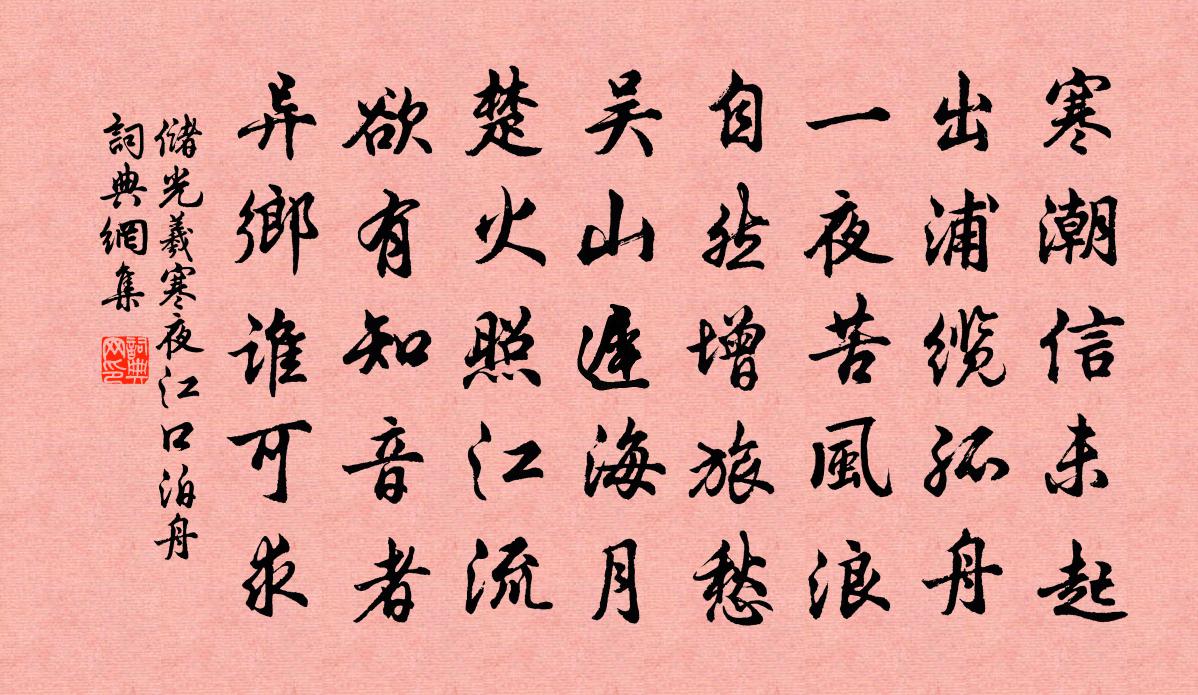 寒潮信未起
出浦缆孤舟
一夜苦風浪
自然增旅愁
吴山遲海月
楚火照江流
欲有知音者
异鄉谁可求
储光羲寒夜江口泊舟
詞典網集
詞典网印